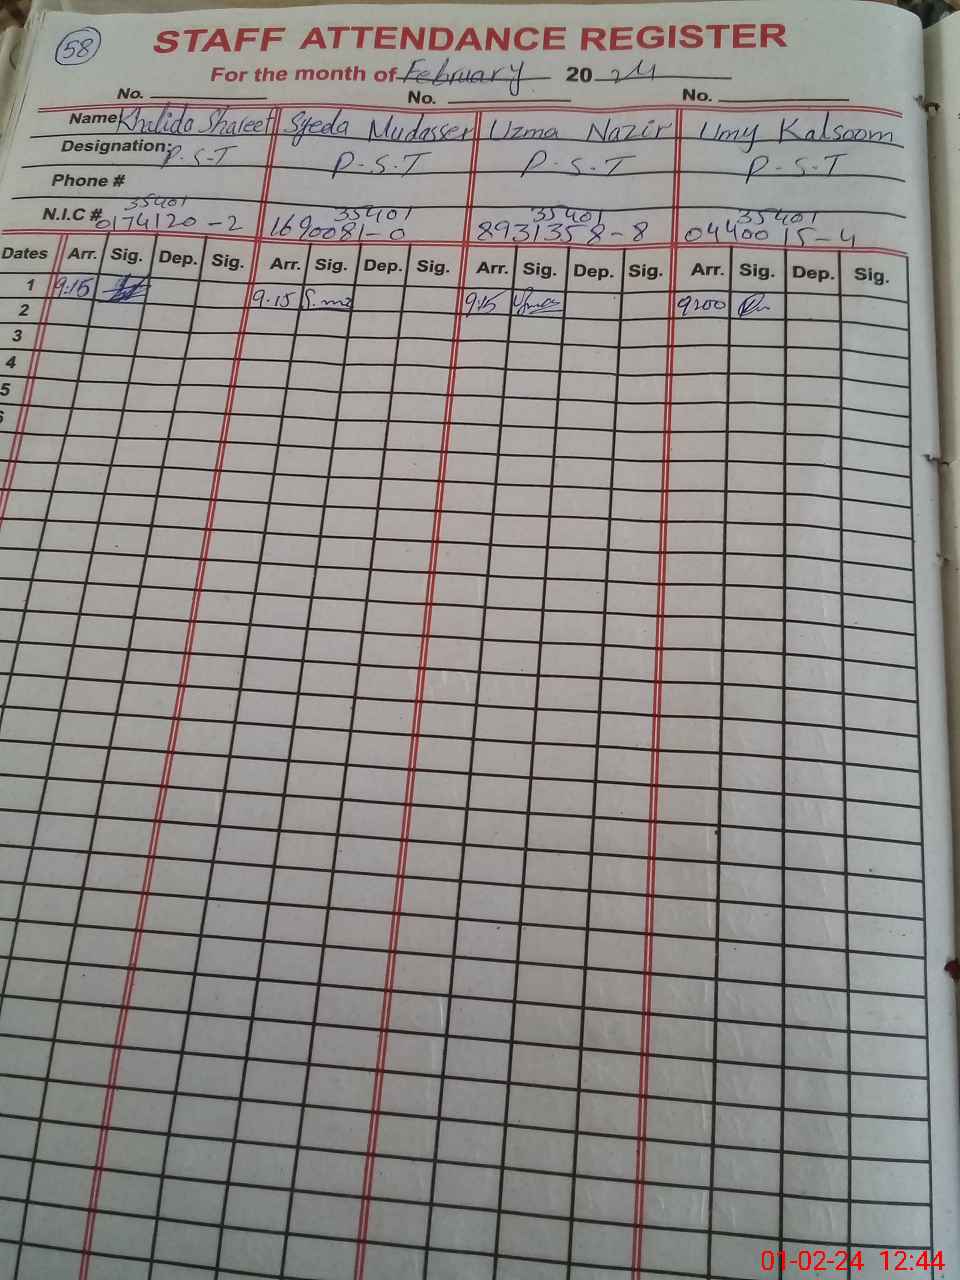 58
STAFF ATTENDANCE REGISTER
For the month of February 2024
No. No. No.
Name Khalida Shareef Syeda Mudasser Uzma Nazir Umy Kalsoom
Designation: P.S.T P.S.T P.S.T P.S.T
Phone #
35401 35401 35401 35401
N.I.C # 0174120-2 1690081-0 8931358-8 0440015-4
Dates Arr. Sig. Dep. Sig. Arr. Sig. Dep. Sig. Arr. Sig. Dep. Sig. Arr. Sig. Dep. Sig.
1 9:15 9.15 9:15 9:00
2
3
4
5
6
01-02-24 12:44